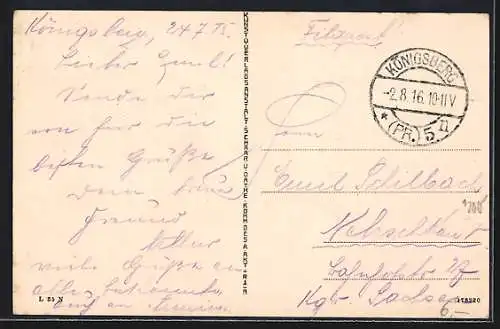 Königsberg, 24.7.
Lieber Emil!
Sende dir
von hier die
besten Grüße
dein
Freund
Arthur
viele Grüße an
alles
auch an
KUNSTVERLAGSANSTALT SCHAAR U. DATHE KOMM.GES.A.AKT. TRIER
Feldpost
KÖNIGSBERG
-2.8.16.10-11V
* (PR.) 5 n
Herrn
Emil Schilbach
Netzschkau
Bahnhofstr.
Kgr. Sachsen
L 54 N
6,-